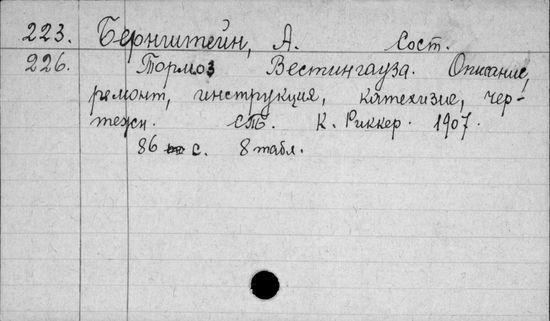 223. Бернштейн, А. Сост.
226. Тормоз Вестингауза. Описание,
ремонт, инструкция, катехизис, чер-
тежи. СПб. К. Риккер. 1907.
86 с. 8 табл.